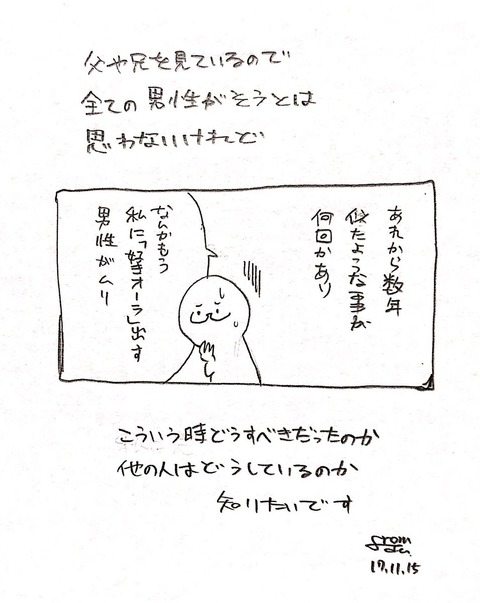 父や兄を見ているので
全ての男性がそうとは
思わないけれど
あれから数年
似たような事が
何回かあり
なんかもう
私に「好きオーラ」出す
男性がムリ
こういう時どうすべきだったのか
他の人はどうしているのか
知りたいです
from
17.11.15